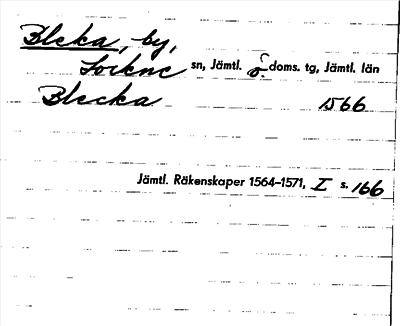 Bleka, by,
Lockne sn, Jämtl. ö. doms. tg, Jämtl. län
Blecka 1566
Jämtl. Räkenskaper 1564–1571, I s. 166